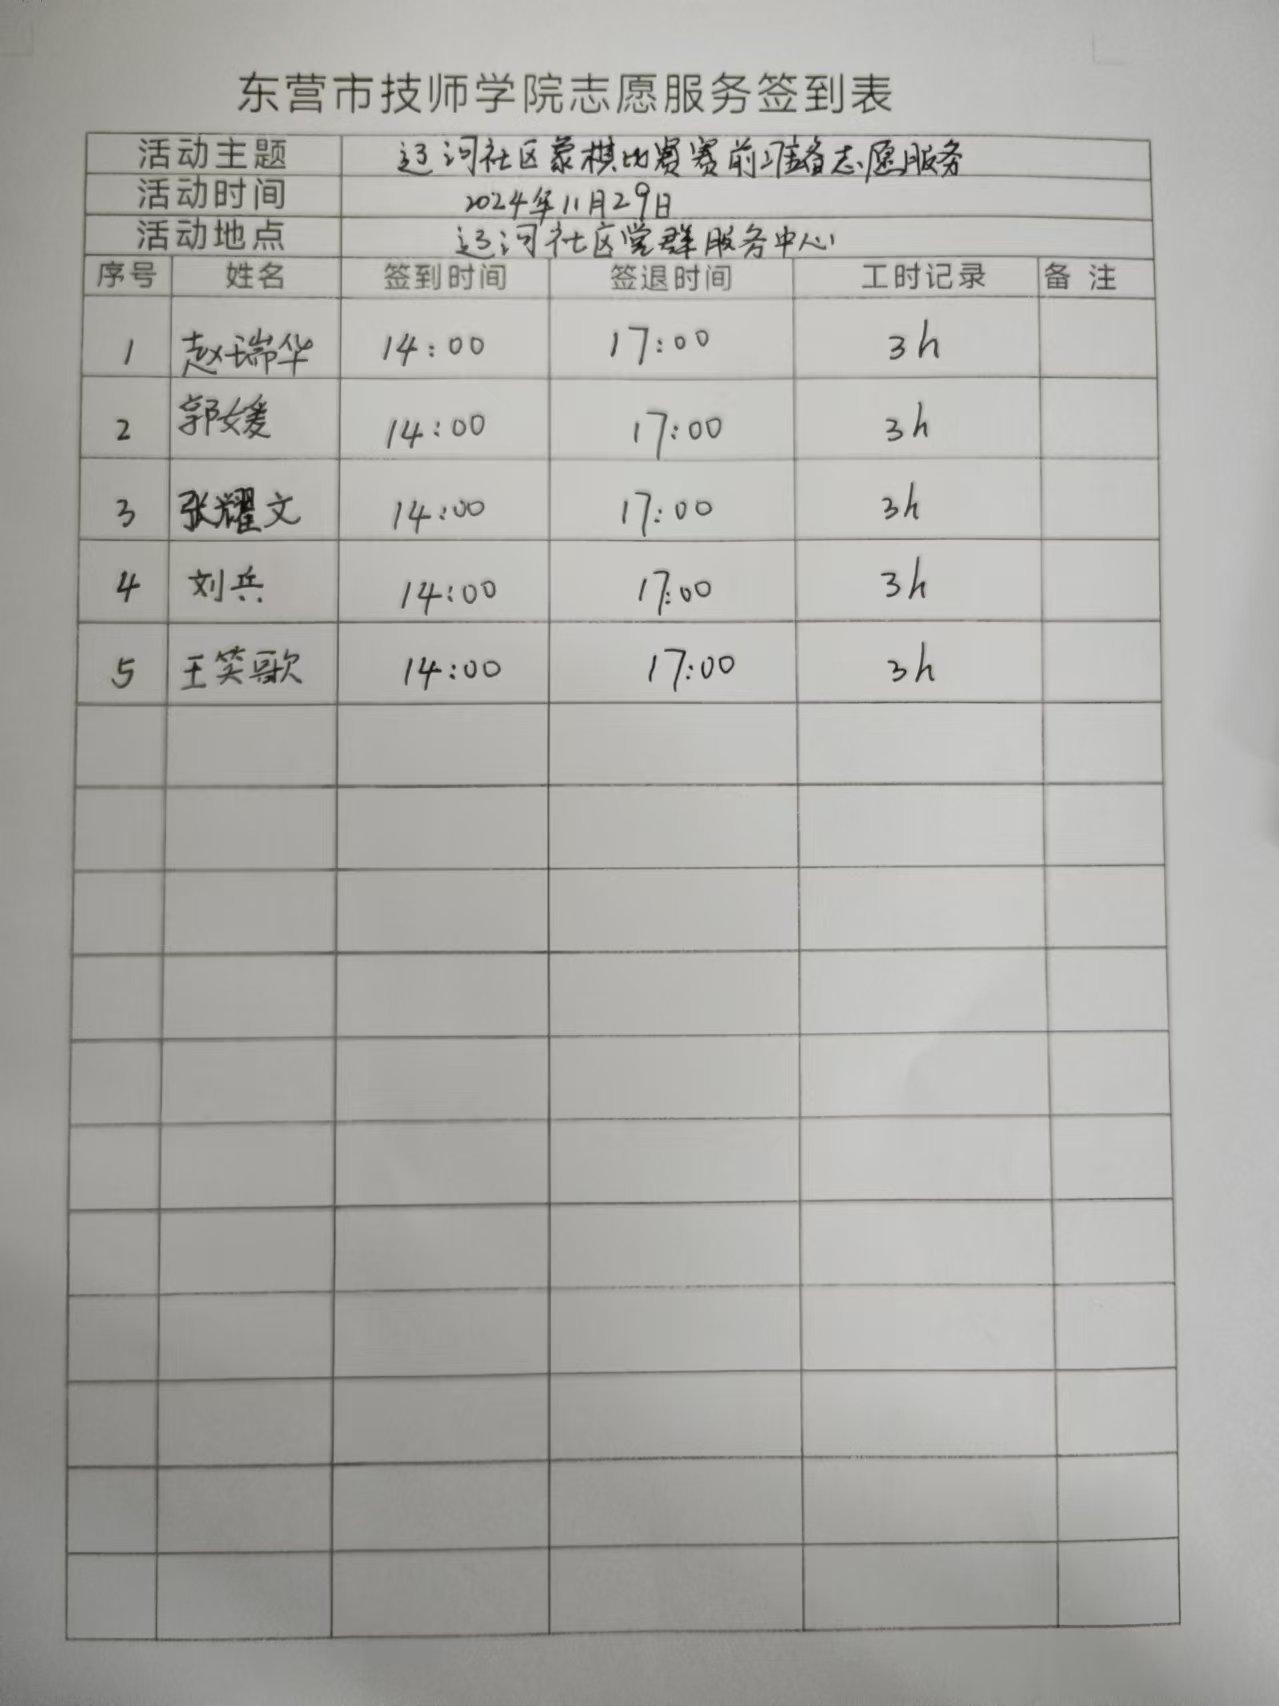 东营市技师学院志愿服务签到表
活动主题 辽河社区象棋比赛赛前准备志愿服务
活动时间 2024年11月29日
活动地点 辽河社区党群服务中心
序号 姓名 签到时间 签退时间 工时记录 备 注
1 赵瑞华 14:00 17:00 3h
2 郭媛 14:00 17:00 3h
3 张耀文 14:00 17:00 3h
4 刘兵 14:00 17:00 3h
5 王笑歌 14:00 17:00 3h